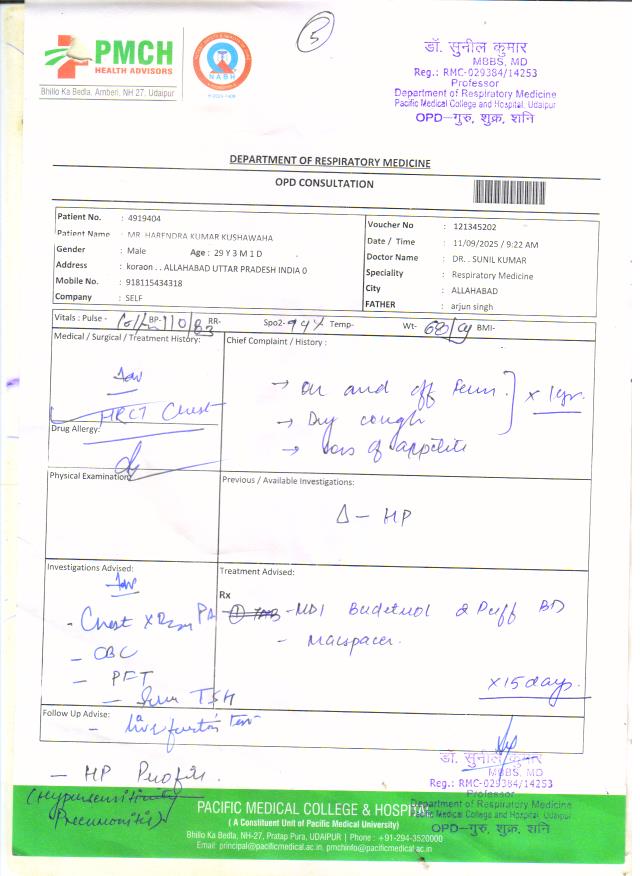 5
PMCH
HEALTH ADVISORS
Bhillo Ka Bedla, Amberi, NH 27, Udaipur
NABH
डॉ. सुनील कुमार
MBBS, MD
Reg.: RMC-029384/14253
Professor
Department of Respiratory Medicine
Pacific Medical College and Hospital, Udaipur
OPD-गुरु, शुक्र, शनि
DEPARTMENT OF RESPIRATORY MEDICINE
OPD CONSULTATION
Patient No. : 4919404
Patient Name : MR. HARENDRA KUMAR KUSHAWAHA
Gender : Male Age : 29 Y 3 M 1 D
Address : koraon . . ALLAHABAD UTTAR PRADESH INDIA 0
Mobile No. : 918115434318
Company : SELF
Voucher No : 121345202
Date / Time : 11/09/2025 / 9:22 AM
Doctor Name : DR. . SUNIL KUMAR
Speciality : Respiratory Medicine
City : ALLAHABAD
FATHER : arjun singh
Vitals : Pulse - BP- 110/83 RR- Spo2- 94% Temp- Wt- 68/kg BMI-
Medical / Surgical / Treatment History:
Adv
HRCT Chest
Drug Allergy:
Chief Complaint / History :
→ On and off
→ Dry cough
→ loss of appetite
x 1yr.
Physical Examination:
Previous / Available Investigations:
Δ - HP
Investigations Advised:
Adv
- Chest X Ray PA
- CBC
- PFT
- Serum TSH
Treatment Advised:
Rx
① - MDI 2 Puff BD
-
x 15 days.
Follow Up Advise:
- Liver function Test
- HP Profile.
(Hypersensitivity
Pneumonitis)
डॉ. सुनील कुमार
MBBS, MD
Reg.: RMC-029384/14253
Professor
Department of Respiratory Medicine
Pacific Medical College and Hospital, Udaipur
OPD-गुरु, शुक्र, शनि
PACIFIC MEDICAL COLLEGE & HOSPITAL
( A Constituent Unit of Pacific Medical University)
Bhillo Ka Bedla, NH-27, Pratap Pura, UDAIPUR | Phone : +91-294-3520000
Email: principal@pacificmedical.ac.in, pmchinfo@pacificmedical.ac.in